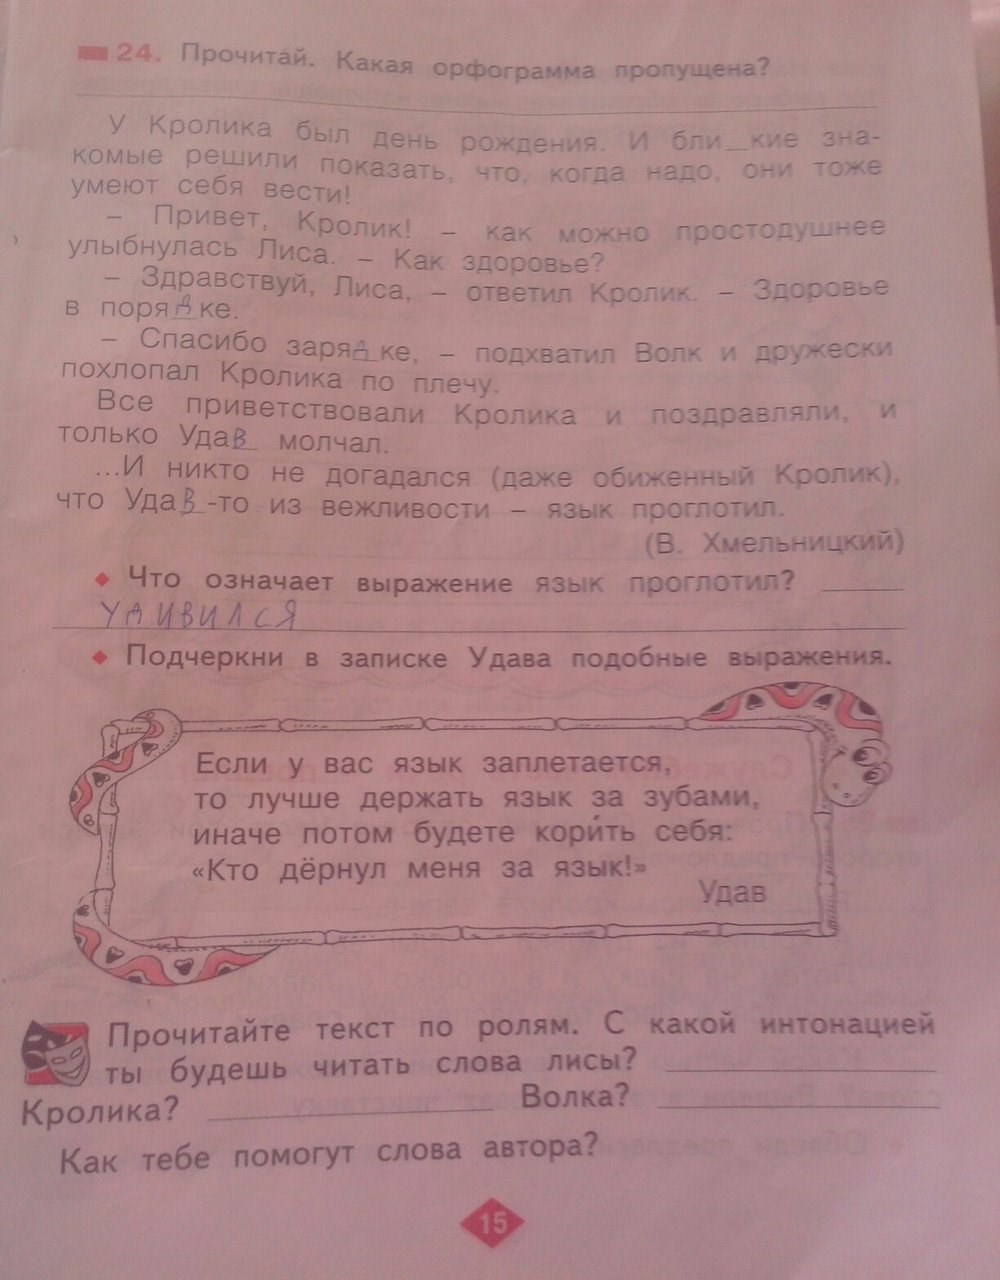 24. Прочитай. Какая орфограмма пропущена?
У Кролика был день рождения. И бли_кие зна-
комые решили показать, что, когда надо, они тоже
умеют себя вести!
– Привет, Кролик! – как можно простодушнее
улыбнулась Лиса. – Как здоровье?
– Здравствуй, Лиса, – ответил Кролик. – Здоровье
в порядке.
– Спасибо зарядке, – подхватил Волк и дружески
похлопал Кролика по плечу.
Все приветствовали Кролика и поздравляли, и
только Удав молчал.
...И никто не догадался (даже обиженный Кролик),
что Удав-то из вежливости – язык проглотил.
(В. Хмельницкий)
♦ Что означает выражение язык проглотил? ____
УДИВИЛСЯ
♦ Подчеркни в записке Удава подобные выражения.
Если у вас язык заплетается,
то лучше держать язык за зубами,
иначе потом будете кори́ть себя:
«Кто дёрнул меня за язык!»
Удав
Прочитайте текст по ролям. С какой интонацией
ты будешь читать слова лисы? ____
Кролика? ____ Волка? ____
Как тебе помогут слова автора?
15